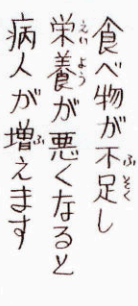 食べ物が不足し
栄養が悪くなると
病人が増えます